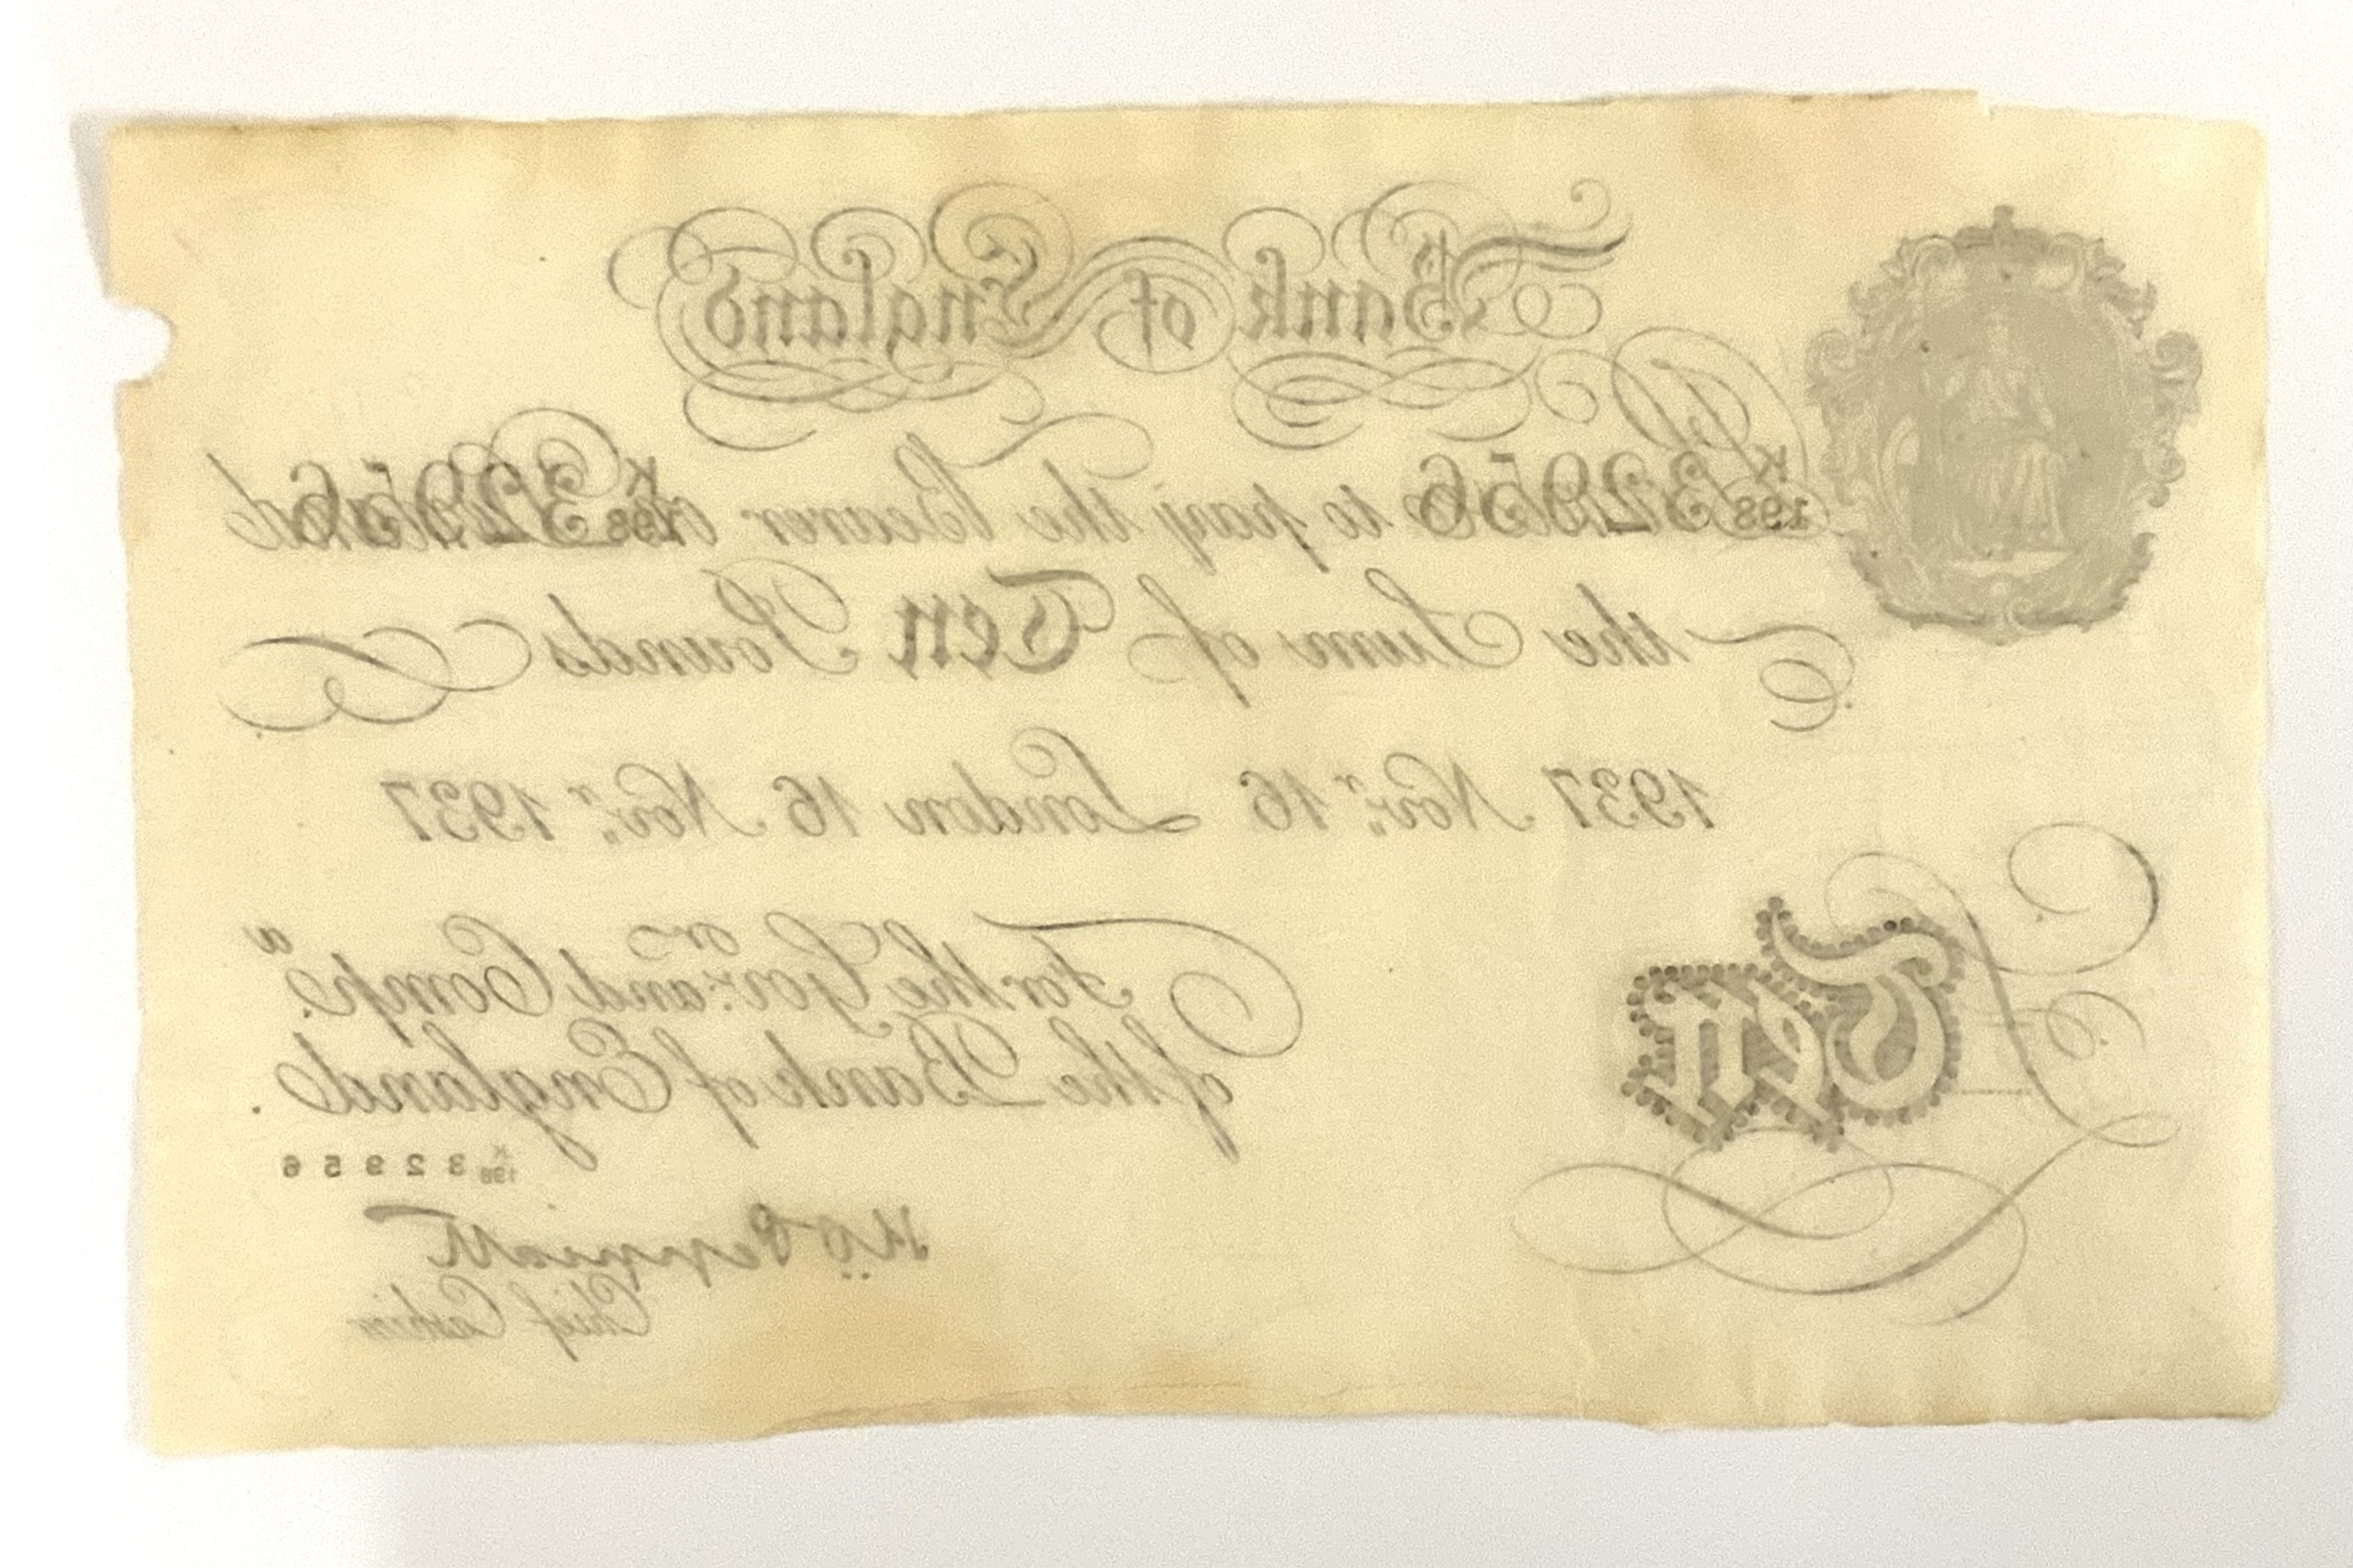 Bank of England
K 198 32956 K 198 32956
Promise to pay the Bearer on Demand
the Sum of Ten Pounds
1937 Nov.r 16 London 16 Nov.r 1937
For the Gov.or and Comp.a
of the Bank of England.
K 198 32956
K.O. Peppiatt
Chief Cashier
£ Ten